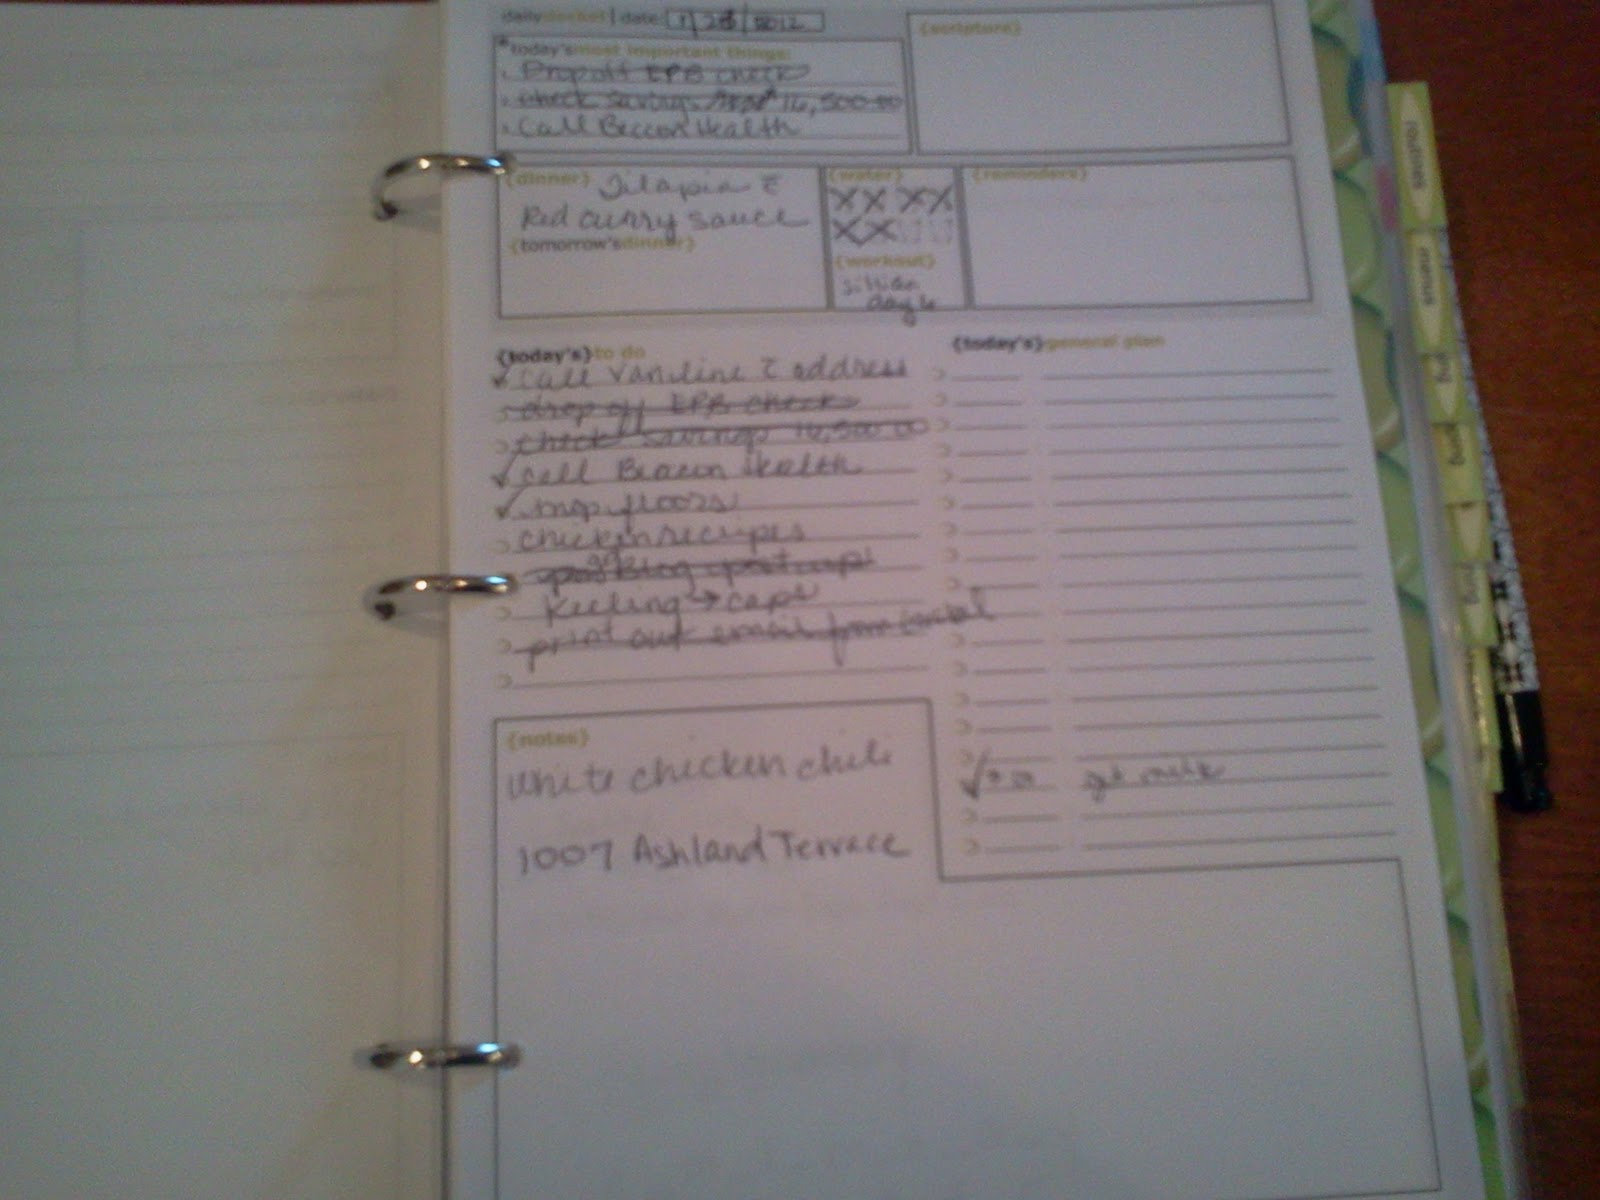 dailydocket | date: 1/23/2012
{scripture}
*today'smost important things:
Dropoff EPB check
check savings 16,500.00
Call Beccon Health
{dinner} Tilapia c̄
Red curry sauce
{tomorrow'sdinner}
{water}
XX XX
XX
{workout}
Jillian
day 6
{reminders}
{today's}to do
✓ call vanline c̄ address
drop off EPB check
check savings 16,500.00
✓ call Beacon Health
✓ mop floors
chicken recipes
Blog post
Keeling → caps
print out email from
{today's}general plan
✓
{notes}
White chicken chili
1007 Ashland Terrace
routines
menus